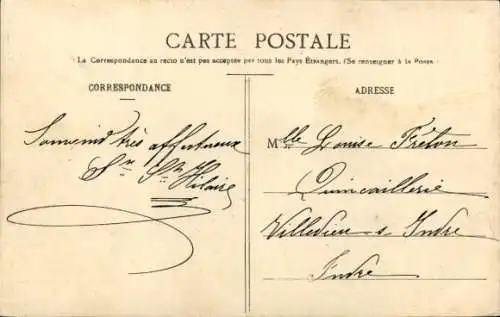 CARTE POSTALE
La Correspondance au recto n'est pas acceptée par tous les Pays Étrangers. (Se renseigner à la Poste)
CORRESPONDANCE
Souvenir très affectueux
St Hilaire
ADRESSE
Mlle Louise Fréton
Quincaillerie
Villedieu s Indre
Indre